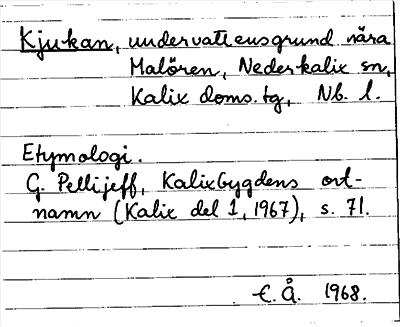 Kjukan, undervattensgrund nära
Malören, Nederkalix sn,
Kalix doms.tg, Nb. l.
Etymologi.
G. Pellijeff, Kalixbygdens ort-
namn (Kalix del 1, 1967), s. 71.
E. Å. 1968.